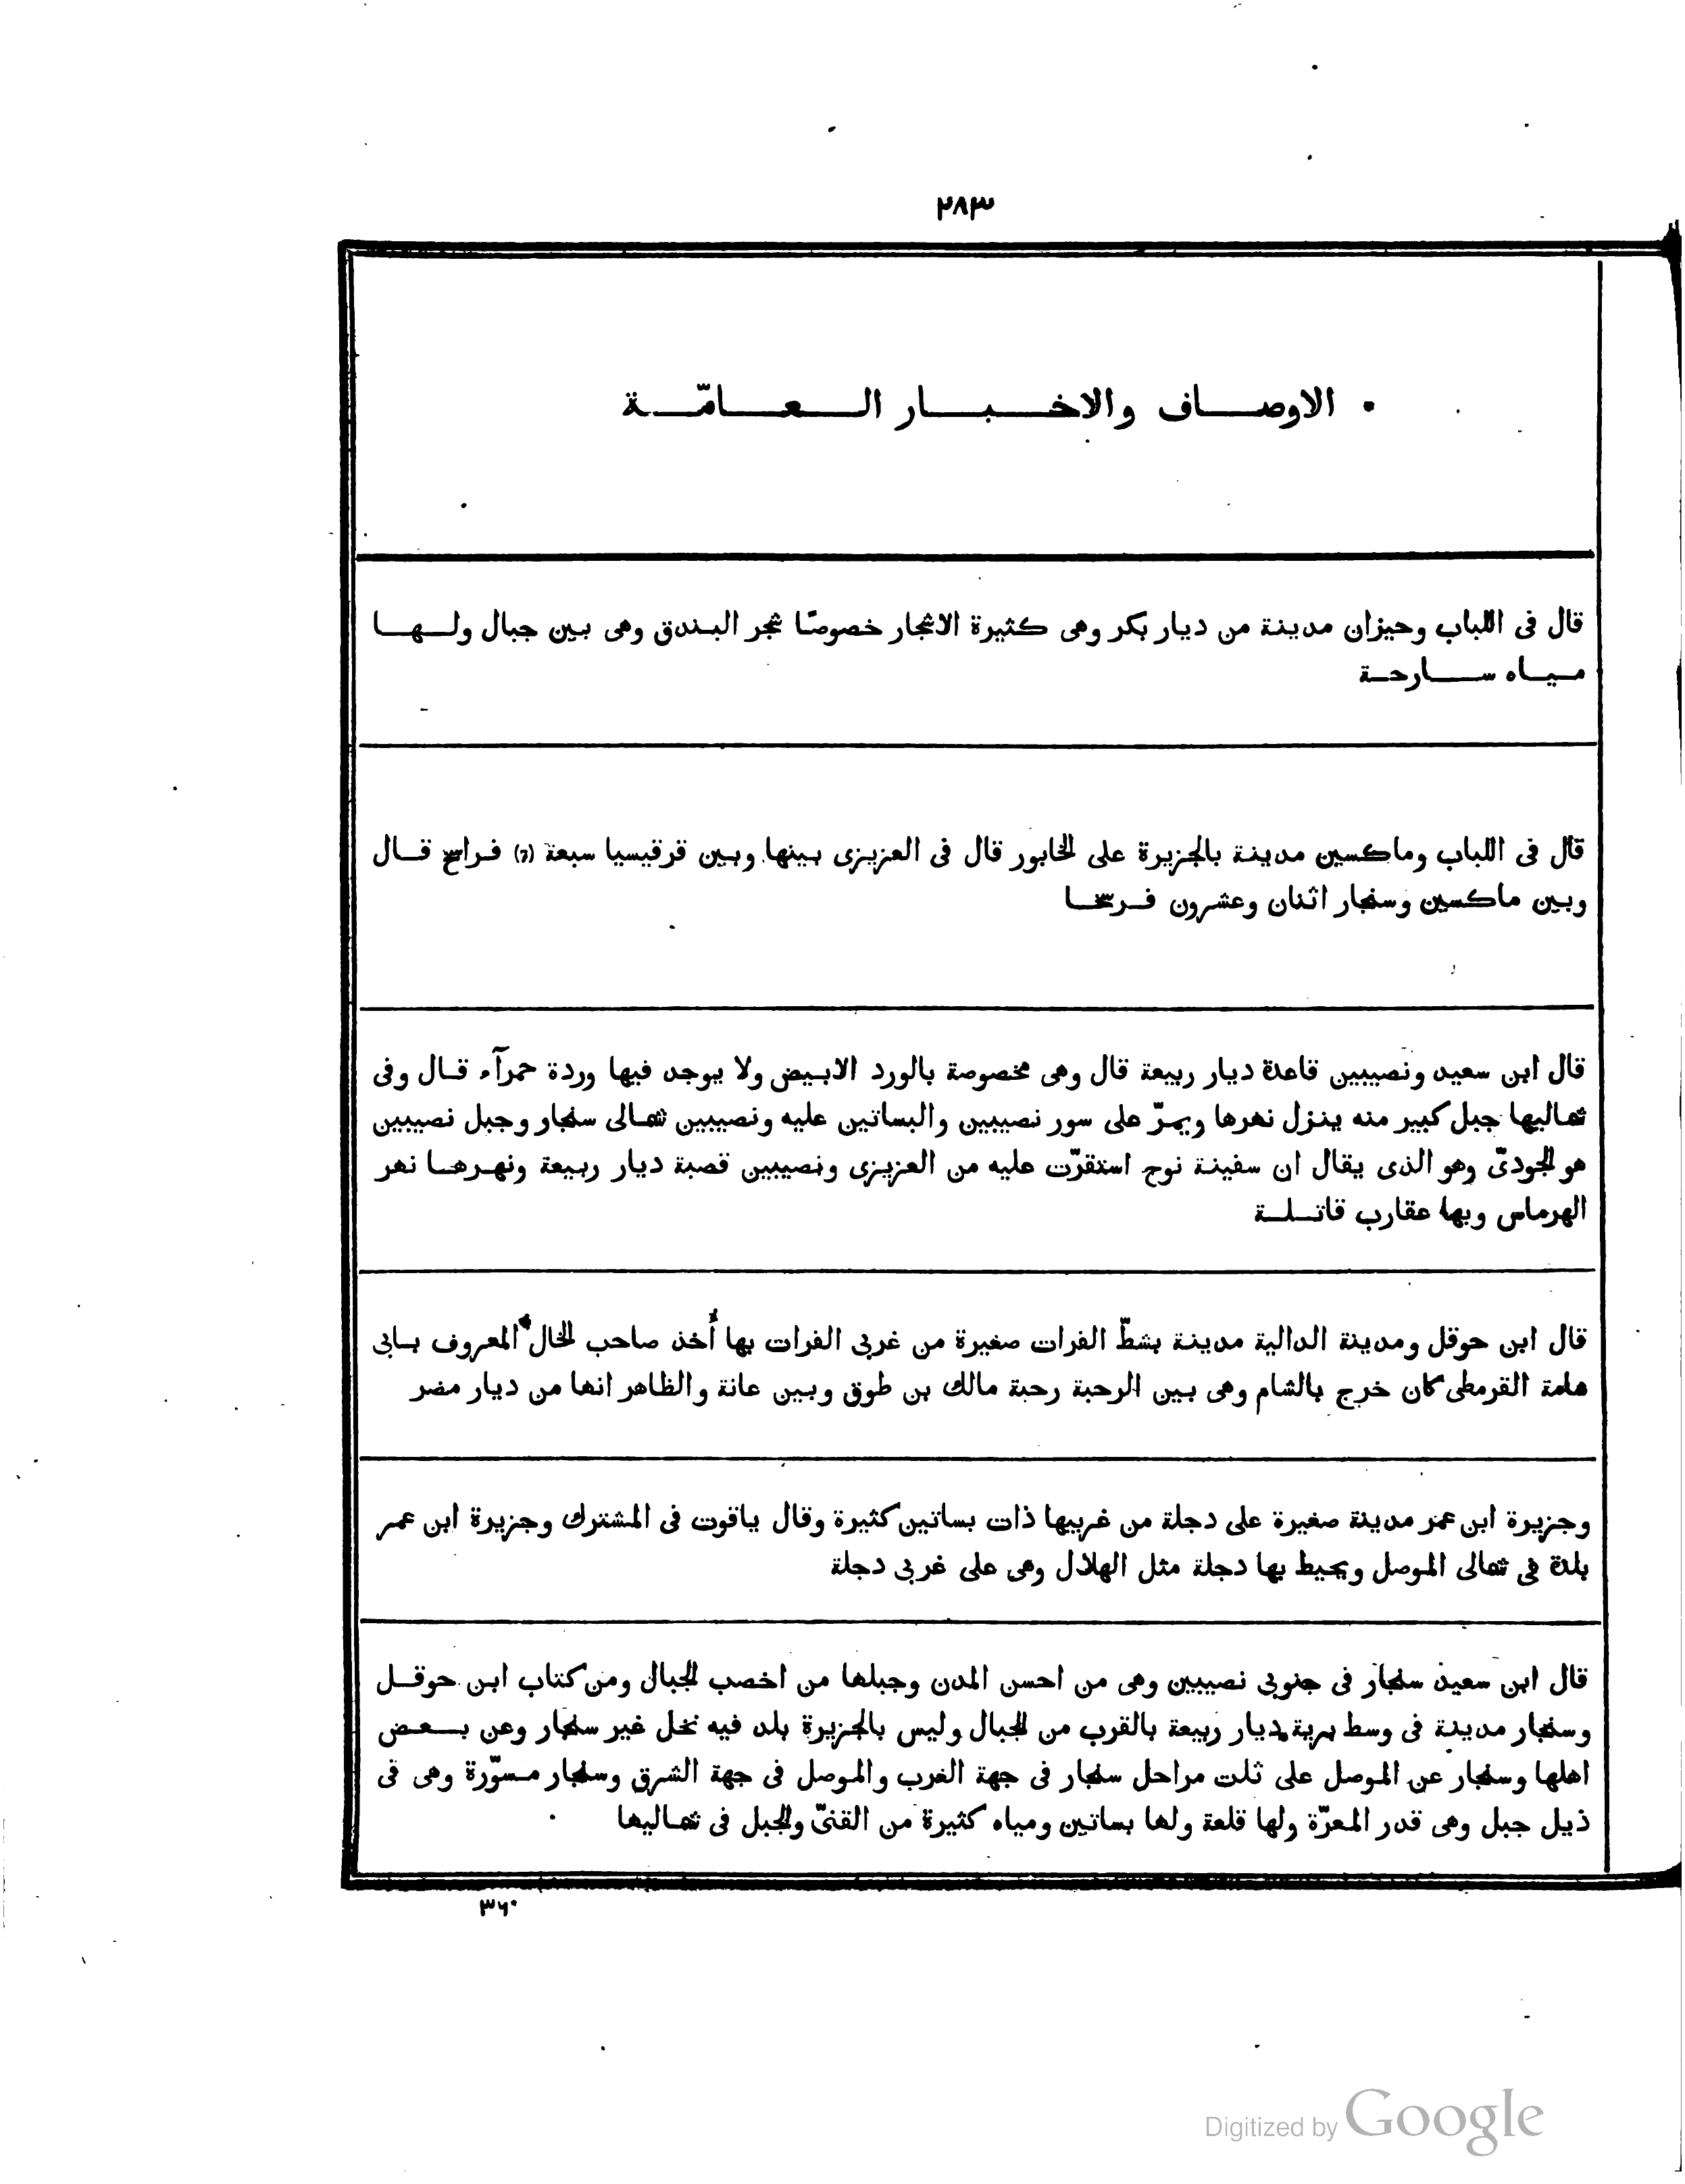 ٢٨٣
الاوصاف والاخبار العامّة
قال فى اللباب وحيزان مدينة من ديار بكر وهى كثيرة الاشجار خصوصًا شجر البندق وهى بين جبال ولها
مياه سارحة
قال فى اللباب وماكسين مدينة بالجزيرة على الخابور قال فى العزيزى بينها وبين قرقيسيا سبعة (7) فراسخ قال
وبين ماكسين وسنجار اثنان وعشرون فرسخا
قال ابن سعيد ونصيبين قاعدة ديار ربيعة قال وهى مخصوصة بالورد الابيض ولا يوجد فيها وردة حمرآء قال وفى
شماليها جبل كبير منه ينزل نهرها ويمرّ على سور نصيبين والبساتين عليه ونصيبين شمالى سنجار وجبل نصيبين
هو الجودىّ وهو الذى يقال ان سفينة نوح استقرّت عليه من العزيزى ونصيبين قصبة ديار ربيعة ونهرها نهر
الهرماس وبها عقارب قاتلة
قال ابن حوقل ومدينة الدالية مدينة بشطّ الفرات صغيرة من غربى الفرات بها أُخذ صاحب الخال المعروف بابى
هامة القرمطى كان خرج بالشام وهى بين الرحبة رحبة مالك بن طوق وبين عانة والظاهر انها من ديار مضر
وجزيرة ابن عمر مدينة صغيرة على دجلة من غربيها ذات بساتين كثيرة وقال ياقوت فى المشترك وجزيرة ابن عمر
بلدة فى شمالى الموصل ويحيط بها دجلة مثل الهلال وهى على غربى دجلة
قال ابن سعيد سنجار فى جنوبى نصيبين وهى من احسن المدن وجبلها من اخصب الجبال ومن كتاب ابن حوقل
وسنجار مدينة فى وسط برية ديار ربيعة بالقرب من الجبال وليس بالجزيرة بلد فيه نخل غير سنجار وعن بعض
اهلها وسنجار عن الموصل على ثلت مراحل سنجار فى جهة الغرب والموصل فى جهة الشرق وسنجار مسوّرة وهى فى
ذيل جبل وهى قدر المعرّة ولها قلعة ولها بساتين ومياه كثيرة من القنىّ والجبل فى شماليها
٣٦٠
Digitized by Google